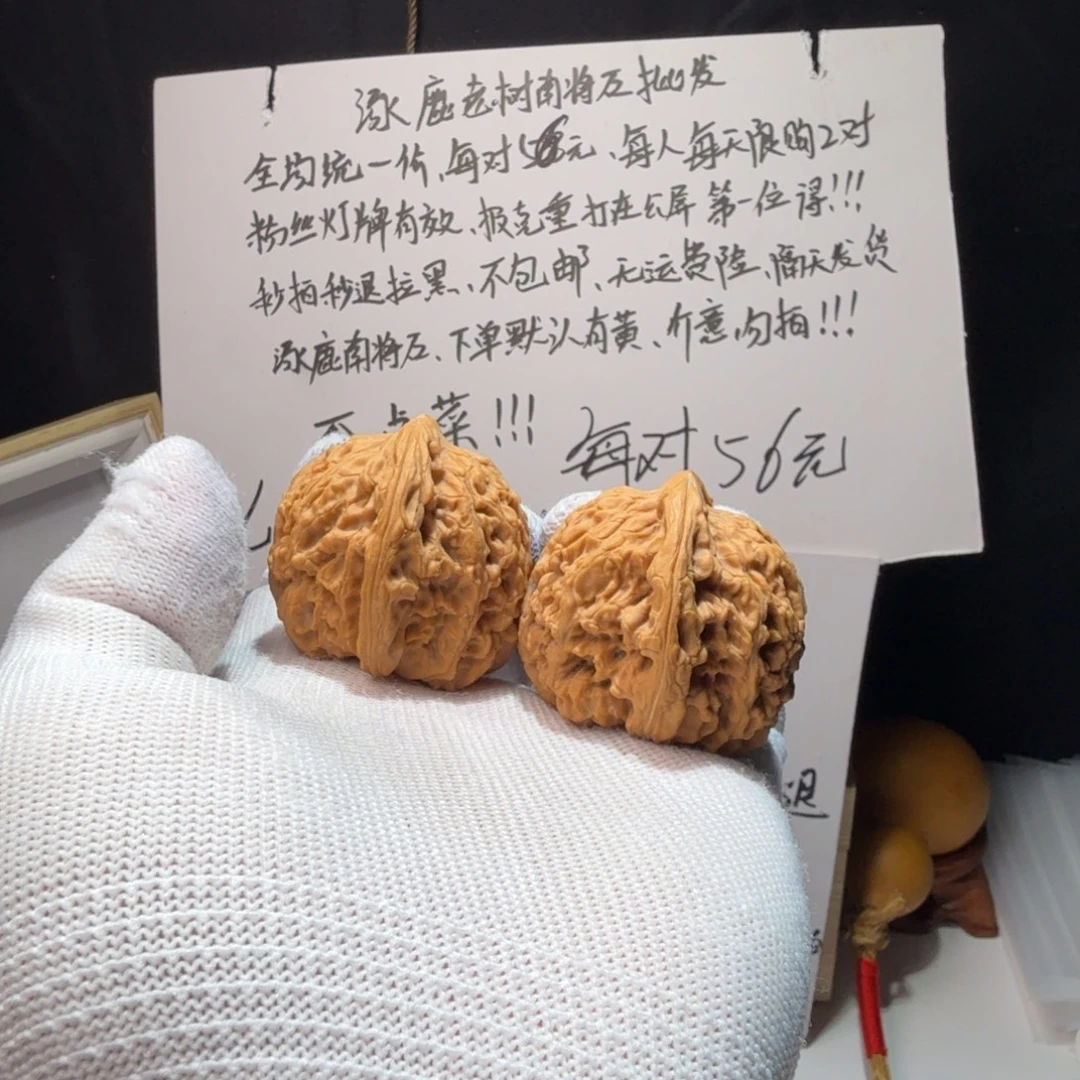 涿鹿老树南将石批发
全均统一价、每对56元、每人每天限购2对
粉丝灯牌有效、报克重打在公屏 第一位得!!!
秒拍秒退拉黑、不包邮、无运费险、隔天发货
涿鹿南将石、下单默认有黄、介意勿拍!!!
不点菜!!! 每对56元
退